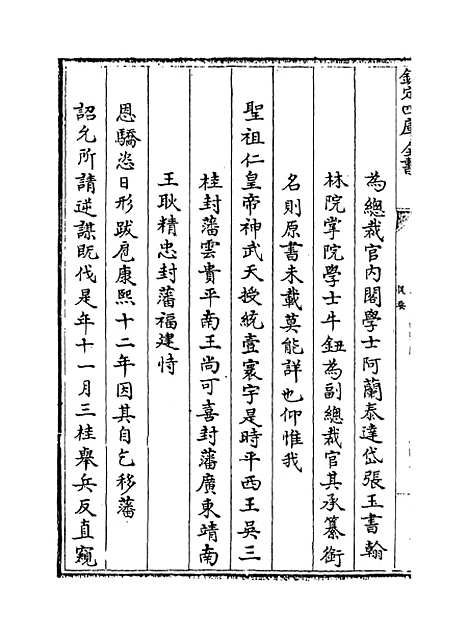 欽定四庫全書
提要
為總裁官內閣學士阿蘭泰達岱張玉書翰
林院掌院學士牛鈕為副總裁官其承纂銜
名則原書未載莫能詳也仰惟我
聖祖仁皇帝神武天授統壹寰宇是時平西王吳三
桂封藩雲貴平南王尚可喜封藩廣東靖南
王耿精忠封藩福建恃
恩驕恣日形跋扈康熙十二年因其自乞移藩
詔允所請逆謀旣伐是年十一月三桂舉兵反直窺